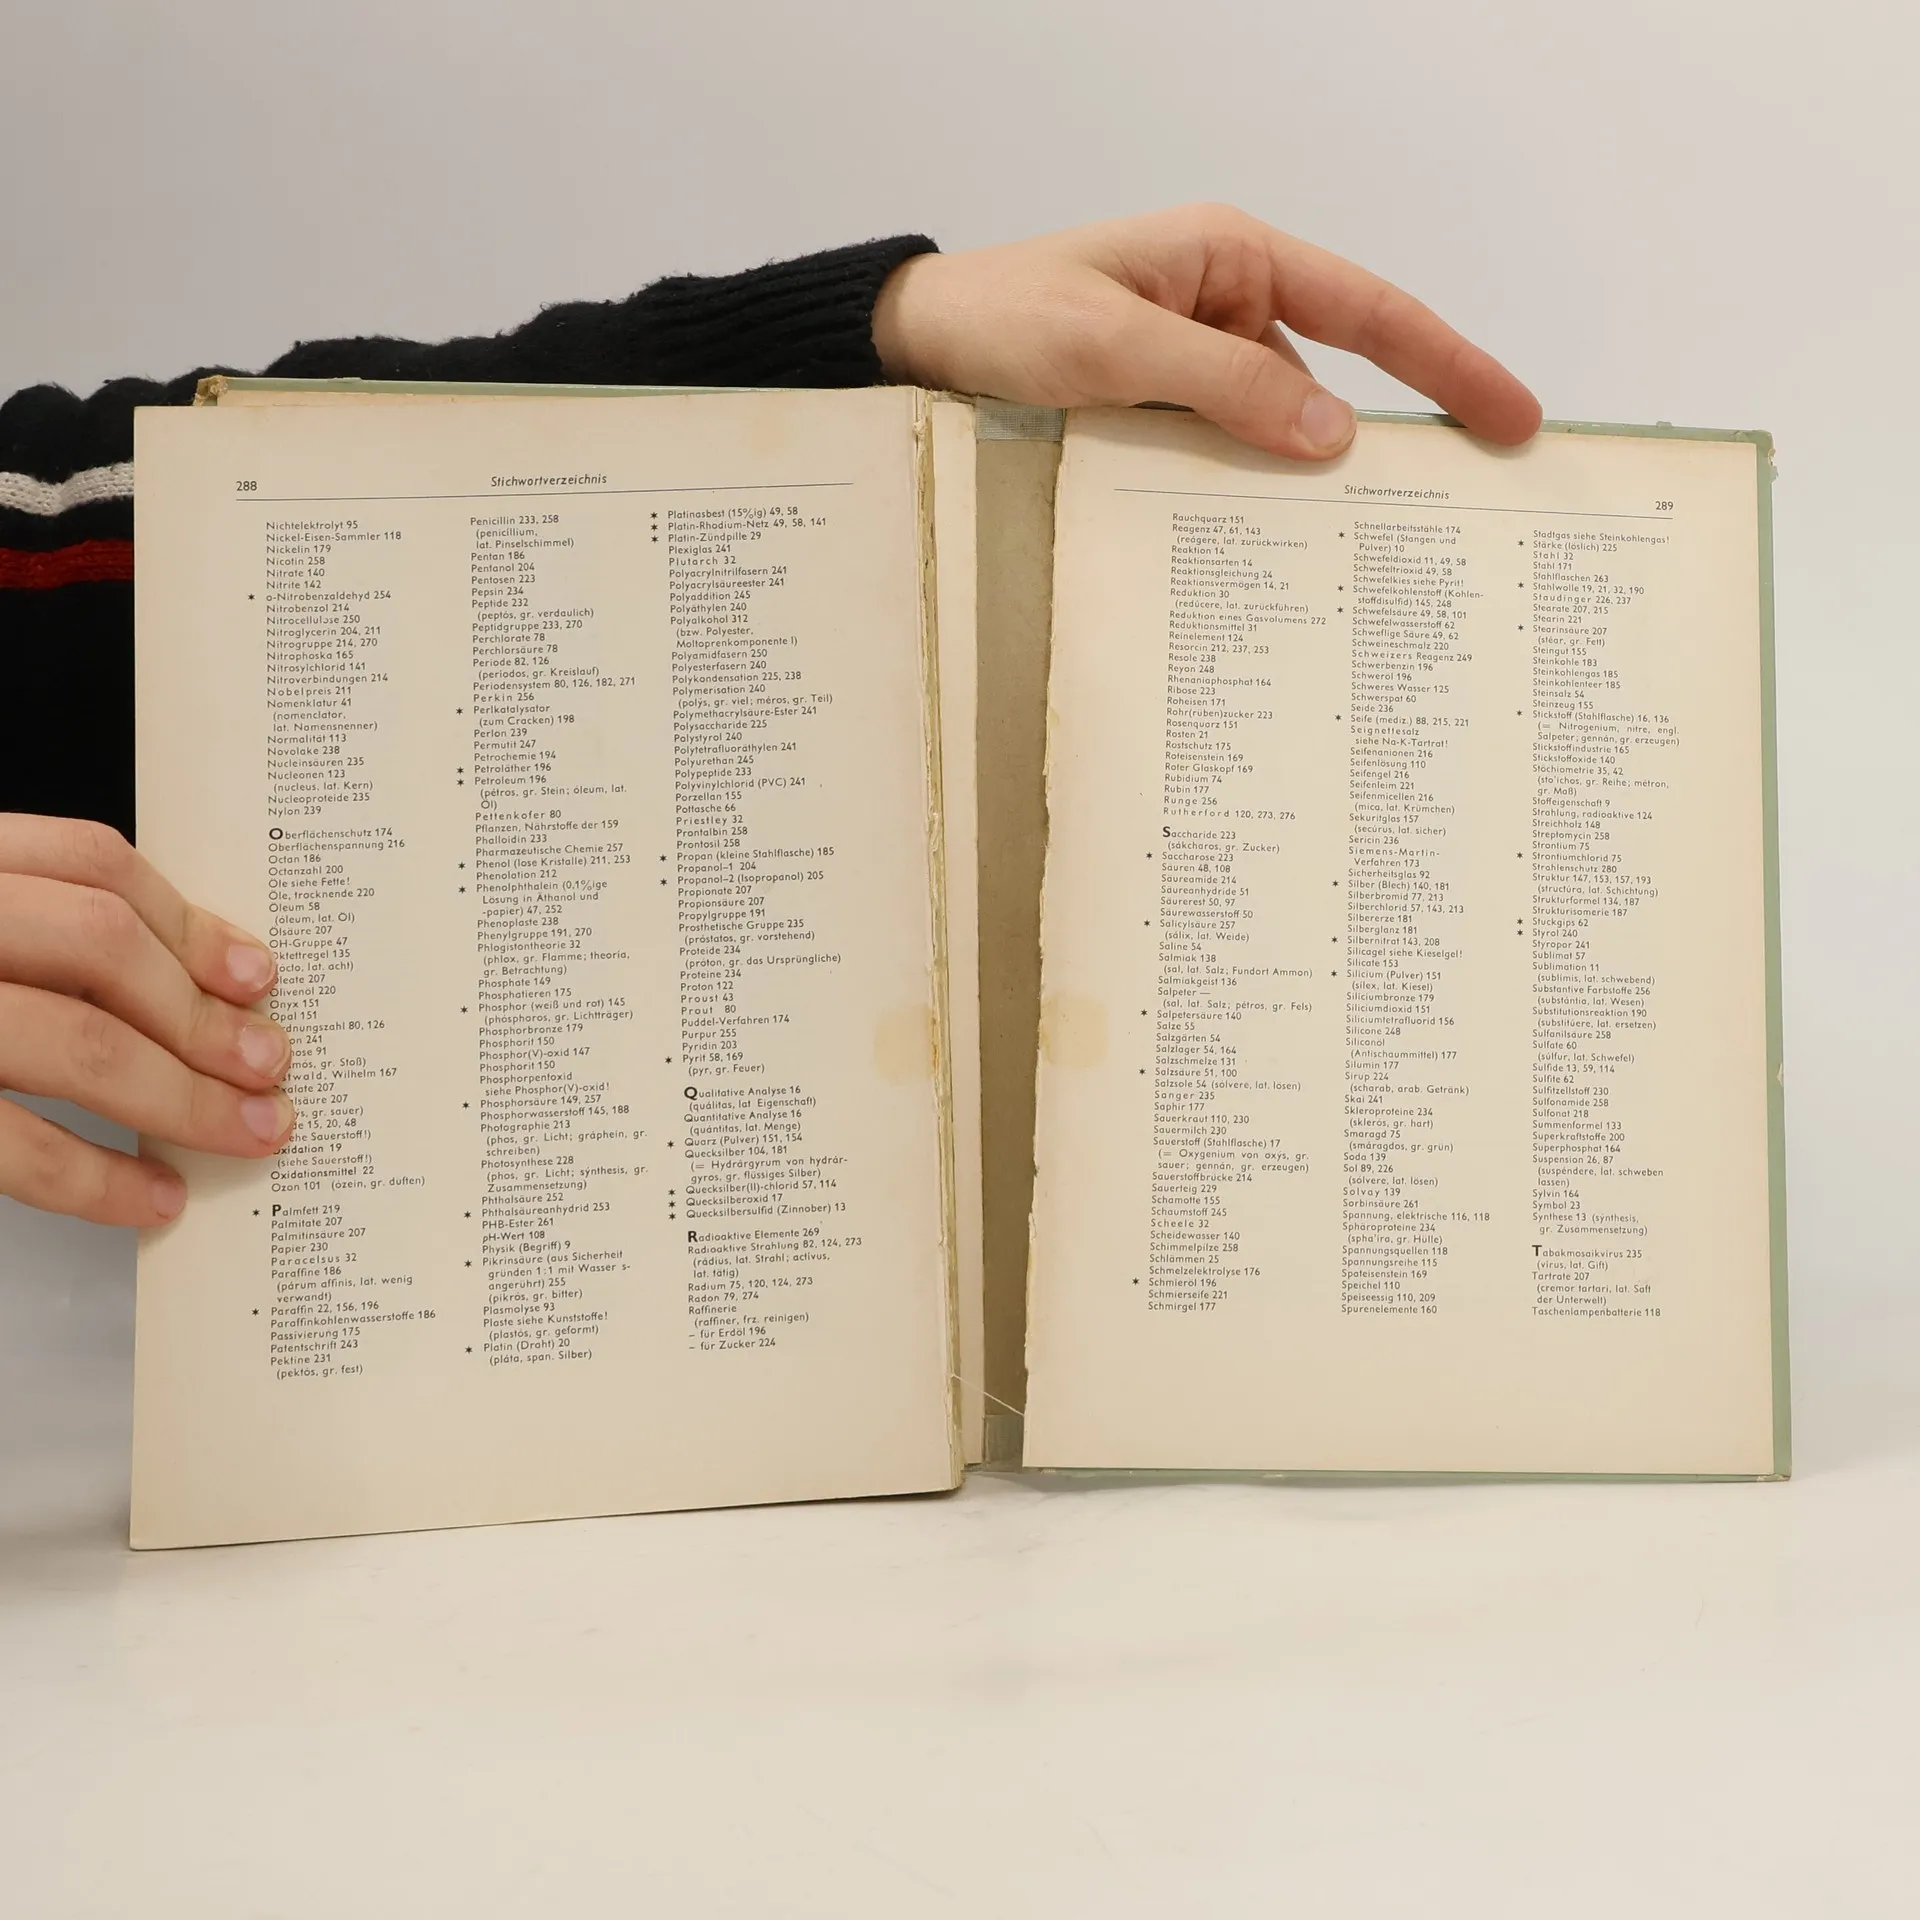 288
Stichwortverzeichnis
Nichtelektrolyt 95
Nickel-Eisen-Sammler 118
Nickelin 179
Nicotin 258
Nitrate 140
Nitrite 142
* o-Nitrobenzaldehyd 254
Nitrobenzol 214
Nitrocellulose 250
Nitroglycerin 204, 211
Nitrogruppe 214, 270
Nitrophoska 165
Nitrosylchlorid 141
Nitroverbindungen 214
Nobelpreis 211
Nomenklatur 41
(nomenclator,
lat. Namensnenner)
Normalität 113
Novolake 238
Nucleinsäuren 235
Nucleonen 123
(nucleus, lat. Kern)
Nucleoproteide 235
Nylon 239
Oberflächenschutz 174
Oberflächenspannung 216
Octan 186
Octanzahl 200
Öle siehe Fette!
Öle, trocknende 220
Oleum 58
(óleum, lat. Öl)
Ölsäure 207
OH-Gruppe 47
ktettregel 135
octo, lat. acht)
leate 207
Olivenöl 220
Onyx 151
Opal 151
rdnungszahl 80, 126
on 241
ose 91
mós, gr. Stoß)
twald, Wilhelm 167
xalate 207
lsäure 207
ýs, gr. sauer)
de 15, 20, 48
ehe Sauerstoff!)
Oxidation 19
(siehe Sauerstoff!)
Oxidationsmittel 22
Ozon 101 (ózein, gr. duften)
* Palmfett 219
Palmitate 207
Palmitinsäure 207
Papier 230
Paracelsus 32
Paraffine 186
(párum affinis, lat. wenig
verwandt)
* Paraffin 22, 156, 196
Paraffinkohlenwasserstoffe 186
Passivierung 175
Patentschrift 243
Pektine 231
(pektós, gr. fest)
Penicillin 233, 258
(penicillium,
lat. Pinselschimmel)
Pentan 186
Pentanol 204
Pentosen 223
Pepsin 234
Peptide 232
(peptós, gr. verdaulich)
Peptidgruppe 233, 270
Perchlorate 78
Perchlorsäure 78
Periode 82, 126
(períodos, gr. Kreislauf)
Periodensystem 80, 126, 182, 271
Perkin 256
* Perlkatalysator
(zum Cracken) 198
Perlon 239
Permutit 247
Petrochemie 194
* Petroläther 196
* Petroleum 196
(pétros, gr. Stein; óleum, lat.
Öl)
Pettenkofer 80
Pflanzen, Nährstoffe der 159
Phalloidin 233
Pharmazeutische Chemie 257
* Phenol (lose Kristalle) 211, 253
Phenolation 212
* Phenolphthalein (0,1%ige
Lösung in Äthanol und
-papier) 47, 252
Phenoplaste 238
Phenylgruppe 191, 270
Phlogistontheorie 32
(phlox, gr. Flamme; theoría,
gr. Betrachtung)
Phosphate 149
Phosphatieren 175
* Phosphor (weiß und rot) 145
(phósphoros, gr. Lichtträger)
Phosphorbronze 179
Phosphorit 150
Phosphor(V)-oxid 147
Phosphorit 150
Phosphorpentoxid
siehe Phosphor(V)-oxid!
* Phosphorsäure 149, 257
Phosphorwasserstoff 145, 188
Photographie 213
(phos, gr. Licht; gráphein, gr.
schreiben)
Photosynthese 228
(phos, gr. Licht; sýnthesis, gr.
Zusammensetzung)
Phthalsäure 252
* Phthalsäureanhydrid 253
PHB-Ester 261
pH-Wert 108
Physik (Begriff) 9
* Pikrinsäure (aus Sicherheit
gründen 1:1 mit Wasser s-
angerührt) 255
(pikrós, gr. bitter)
Plasmolyse 93
Plaste siehe Kunststoffe!
(plastós, gr. geformt)
* Platin (Draht) 20
(pláta, span. Silber)
* Platinasbest (15%ig) 49, 58
* Platin-Rhodium-Netz 49, 58, 141
* Platin-Zündpille 29
Plexiglas 241
Plutarch 32
Polyacrylnitrilfasern 241
Polyacrylsäureester 241
Polyaddition 245
Polyäthylen 240
Polyalkohol 312
(bzw. Polyester,
Moltoprenkomponente I)
Polyamidfasern 250
Polyesterfasern 240
Polykondensation 225, 238
Polymerisation 240
(polýs, gr. viel; méros, gr. Teil)
Polymethacrylsäure-Ester 241
Polysaccharide 225
Polystyrol 240
Polytetrafluoräthylen 241
Polyurethan 245
Polypeptide 233
Polyvinylchlorid (PVC) 241
Porzellan 155
Pottasche 66
Priestley 32
Prontalbin 258
Prontosil 258
* Propan (kleine Stahlflasche) 185
Propanol-1 204
* Propanol-2 (Isopropanol) 205
Propionate 207
Propionsäure 207
Propylgruppe 191
Prosthetische Gruppe 235
(próstatos, gr. vorstehend)
Proteide 234
(próton, gr. das Ursprüngliche)
Proteine 234
Proton 122
Proust 43
Prout 80
Puddel-Verfahren 174
Purpur 255
Pyridin 203
* Pyrit 58, 169
(pyr, gr. Feuer)
Qualitative Analyse 16
(quálitas, lat. Eigenschaft)
Quantitative Analyse 16
(quántitas, lat. Menge)
* Quarz (Pulver) 151, 154
Quecksilber 104, 181
(= Hydrárgyrum von hydrár-
gyros, gr. flüssiges Silber)
* Quecksilber(II)-chlorid 57, 114
* Quecksilberoxid 17
* Quecksilbersulfid (Zinnober) 13
Radioaktive Elemente 269
Radioaktive Strahlung 82, 124, 273
(rádius, lat. Strahl; activus,
lat. tätig)
Radium 75, 120, 124, 273
Radon 79, 274
Raffinerie
(raffiner, frz. reinigen)
– für Erdöl 196
– für Zucker 224
Stichwortverzeichnis
289
Rauchquarz 151
Reagenz 47, 61, 143
(reágere, lat. zurückwirken)
Reaktion 14
Reaktionsarten 14
Reaktionsgleichung 24
Reaktionsvermögen 14, 21
Reduktion 30
(redúcere, lat. zurückführen)
Reduktion eines Gasvolumens 272
Reduktionsmittel 31
Reinelement 124
Resorcin 212, 237, 253
Resole 238
Reyon 248
Rhenaniaphosphat 164
Ribose 223
Roheisen 171
Rohr(rüben)zucker 223
Rosenquarz 151
Rosten 21
Rostschutz 175
Roteisenstein 169
Roter Glaskopf 169
Rubidium 74
Rubin 177
Runge 256
Rutherford 120, 273, 276
Saccharide 223
(sákcharos, gr. Zucker)
* Saccharose 223
Säuren 48, 108
Säureamide 214
Säureanhydride 51
Säurerest 50, 97
Säurewasserstoff 50
* Salicylsäure 257
(sálix, lat. Weide)
Saline 54
Salmiak 138
(sal, lat. Salz; Fundort Ammon)
Salmiakgeist 136
Salpeter —
(sal, lat. Salz; pétros, gr. Fels)
* Salpetersäure 140
Salze 55
Salzgärten 54
Salzlager 54, 164
Salzschmelze 131
* Salzsäure 51, 100
Salzsole 54 (sólvere, lat. lösen)
Sanger 235
Saphir 177
Sauerkraut 110, 230
Sauermilch 230
Sauerstoff (Stahlflasche) 17
(= Oxygenium von oxýs, gr.
sauer; gennán, gr. erzeugen)
Sauerstoffbrücke 214
Sauerteig 229
Schamotte 155
Schaumstoff 245
Scheele 32
Scheidewasser 140
Schimmelpilze 258
Schlämmen 25
Schmelzelektrolyse 176
* Schmieröl 196
Schmierseife 221
Schmirgel 177
Schnellarbeitsstähle 174
* Schwefel (Stangen und
Pulver) 10
Schwefeldioxid 11, 49, 58
Schwefeltrioxid 49, 58
Schwefelkies siehe Pyrit!
* Schwefelkohlenstoff (Kohlen-
stoffdisulfid) 145, 248
* Schwefelsäure 49, 58, 101
Schwefelwasserstoff 62
Schweflige Säure 49, 62
Schweineschmalz 220
Schweizers Reagenz 249
Schwerbenzin 196
Schweröl 196
Schweres Wasser 125
Schwerspat 60
Seide 236
* Seife (mediz.) 88, 215, 221
Seignettesalz
siehe Na-K-Tartrat!
Seifenanionen 216
Seifenlösung 110
Seifengel 216
Seifenleim 221
Seifenmicellen 216
(mica, lat. Krümchen)
Sekuritglas 157
(secúrus, lat. sicher)
Sericin 236
Siemens-Martin-
Verfahren 173
Sicherheitsglas 92
* Silber (Blech) 140, 181
Silberbromid 77, 213
Silberchlorid 57, 143, 213
Silbererze 181
Silberglanz 181
* Silbernitrat 143, 208
Silicagel siehe Kieselgel!
Silicate 153
* Silicium (Pulver) 151
(sílex, lat. Kiesel)
Siliciumbronze 179
Siliciumdioxid 151
Siliciumtetrafluorid 156
Silicone 248
Siliconöl
(Antischaummittel) 177
Silumin 177
Sirup 224
(scharab, arab. Getränk)
Skai 241
Skleroproteine 234
(sklerós, gr. hart)
Smaragd 75
(smáragdos, gr. grün)
Soda 139
Sol 89, 226
(sólvere, lat. lösen)
Solvay 139
Sorbinsäure 261
Spannung, elektrische 116, 118
Sphäroproteine 234
(spha'íra, gr. Hülle)
Spannungsquellen 118
Spannungsreihe 115
Spateisenstein 169
Speichel 110
Speiseessig 110, 209
Spurenelemente 160
Stadtgas siehe Steinkohlengas!
* Stärke (löslich) 225
Stahl 32
Stahl 171
Stahlflaschen 263
* Stahlwolle 19, 21, 32, 190
Staudinger 226, 237
Stearate 207, 215
Stearin 221
* Stearinsäure 207
(stéar, gr. Fett)
Steingut 155
Steinkohle 183
Steinkohlengas 185
Steinkohlenteer 185
Steinsalz 54
Steinzeug 155
* Stickstoff (Stahlflasche) 16, 136
(= Nitrogenium, nitre, engl.
Salpeter; gennán, gr. erzeugen)
Stickstoffindustrie 165
Stickstoffoxide 140
Stöchiometrie 35, 42
(sto'ichos, gr. Reihe; métron,
gr. Maß)
Stoffeigenschaft 9
Strahlung, radioaktive 124
Streichholz 148
Streptomycin 258
Strontium 75
* Strontiumchlorid 75
Strahlenschutz 280
Struktur 147, 153, 157, 193
(structúra, lat. Schichtung)
Strukturformel 134, 187
Strukturisomerie 187
* Stuckgips 62
* Styrol 240
Styropor 241
Sublimat 57
Sublimation 11
(sublímis, lat. schwebend)
Substantive Farbstoffe 256
(substántia, lat. Wesen)
Substitutionsreaktion 190
(substitúere, lat. ersetzen)
Sulfanilsäure 258
Sulfate 60
(súlfur, lat. Schwefel)
Sulfide 13, 59, 114
Sulfite 62
Sulfitzellstoff 230
Sulfonamide 258
Sulfonat 218
Summenformel 133
Superkraftstoffe 200
Superphosphat 164
Suspension 26, 87
(suspéndere, lat. schweben
lassen)
Sylvin 164
Symbol 23
Synthese 13 (sýnthesis,
gr. Zusammensetzung)
Tabakmosaikvirus 235
(virus, lat. Gift)
Tartrate 207
(cremor tartari, lat. Saft
der Unterwelt)
Taschenlampenbatterie 118